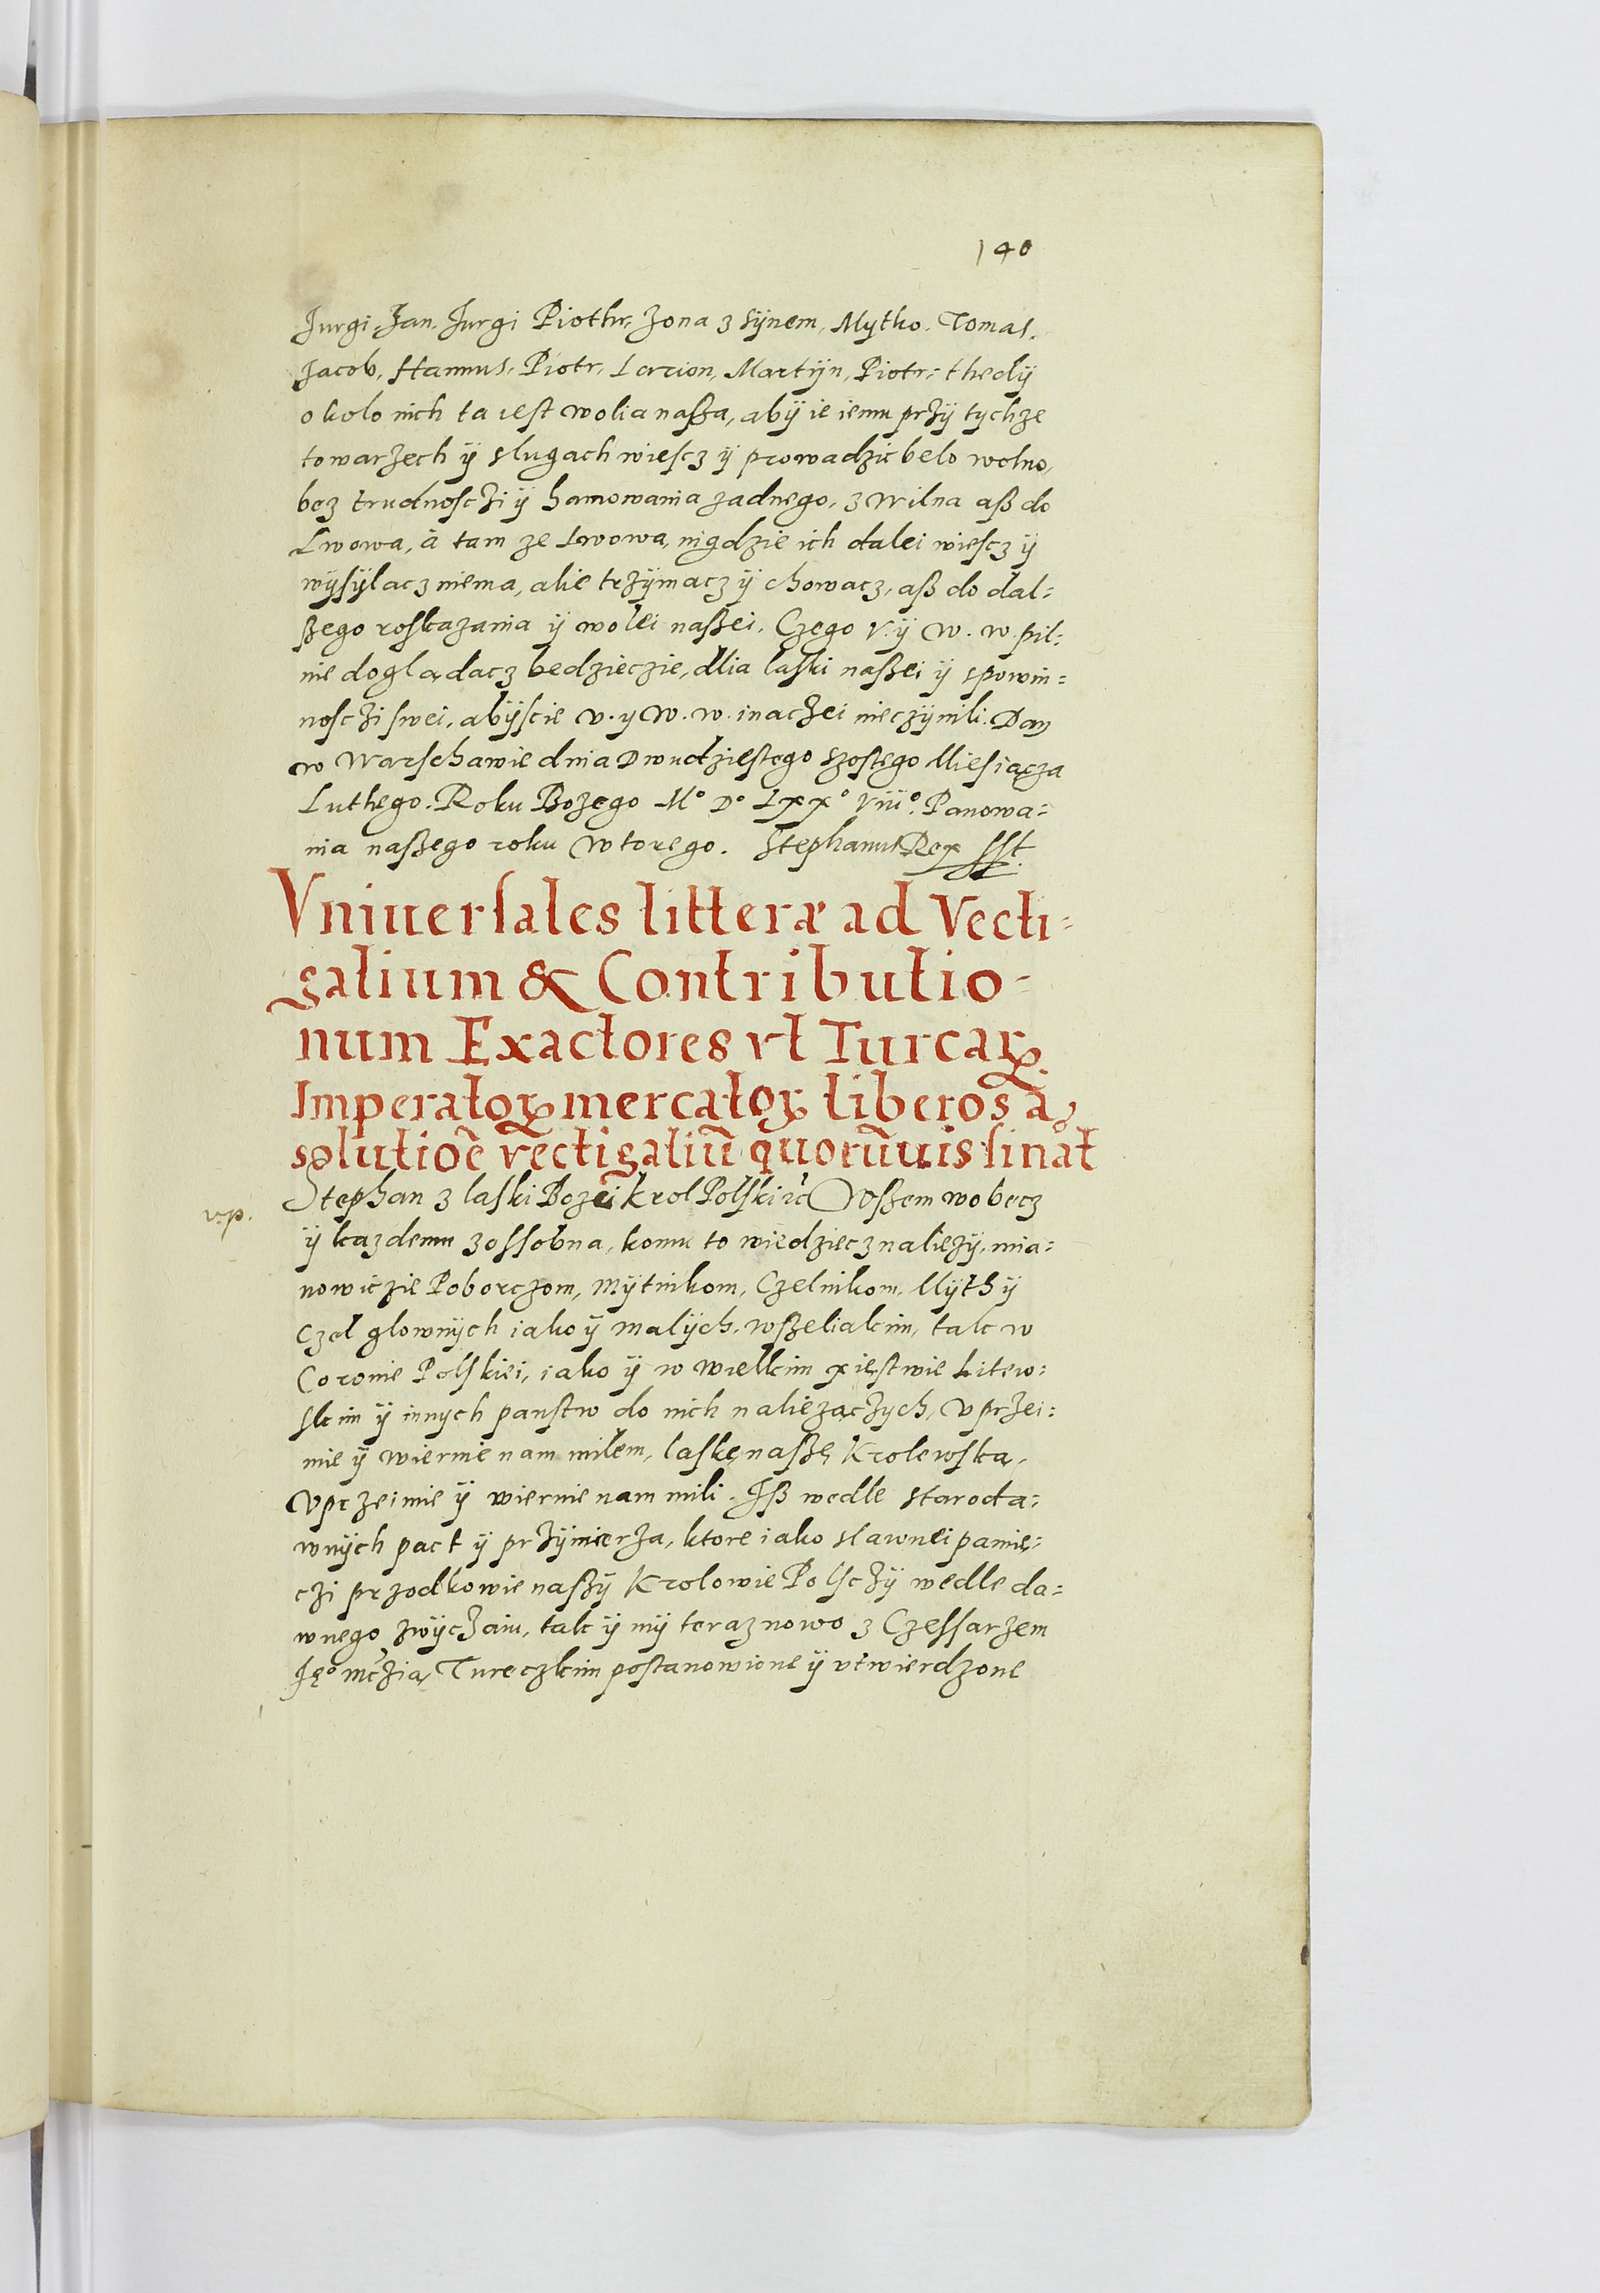 140
Jurgi. Jan. Jurgi Piothr, zona z sÿnem, Mytko. Tomas.
Jacob, Hannus, Piotr, Larion, Martÿn, Piotr,: thedÿ
okolo nich ta iest wolia naßa, abÿ ie iemu przÿ tychze
towarzech ÿ slugach wiescz ÿ prowadzic belo wolno,
bez trudnosczi ÿ hamowania zadnego, z wilna aß do
Lwowa, à tam ze Lwowa, nigdzie ich dalei wiescz ÿ
wÿsÿlacz niema, alie trzÿmacz ÿ chowacz, aß do dal=
ßego roskazania ÿ wolei naßei. Czego V. ÿ W. w. pil=
nie doglądacz bedzieczie, dlia laski naßei ÿ spowin=
nosczi swei, abÿscie v. y W. w. inaczei nieczÿnili. Dan
w Warschawie dnia Dwudziestego szostego Miesiącza
Luthego. Roku Bozego Mº Dº Lxxº Viiiº. Panowa=
nia naßego roku wtorego. Stephanus Rex sst.
Vniuersales litteræ ad Vecti=
galium & Contributio-
num Exactores vt Turcaꝝ
Imperatoꝝ mercatoꝝ liberos à
solutioē vectigaliū quorūuis sinat
v.p.
Stephan z laski Bozei Krol Polski ic Wßem wobecz
ÿ kazdemu zossobna, komu to wiedziecz naliezÿ, mia=
nowiczie Poborczom, Mÿtnikom, Czelnikom, Mÿth ÿ
Czel glownÿch iako ÿ malÿch, wßeliakim, tak w
Coronie Polskiei, iako ÿ w wielkim xięstwie Litew=
skim ÿ innych panstw do nich naliezączych, vprzei=
mie ÿ wiernie nam milem, laskę naßę Krolewską,
Vprzeimie ÿ wiernie nam mili. Iß wedle staroda=
wnÿch pact ÿ przÿmierza, ktore iako slawnei pamię=
czi przodkowie naßÿ Krolowie Polsczÿ wedle da=
wnego zwÿczaiu, tak ÿ mÿ teraz nowo z Czessarzem
Ję° mczią Tureczkim postanowione ÿ vtwierdzone